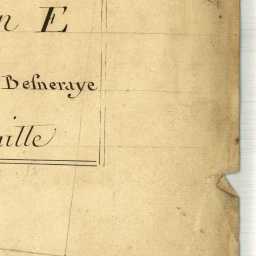 n E
Besneraye
ille